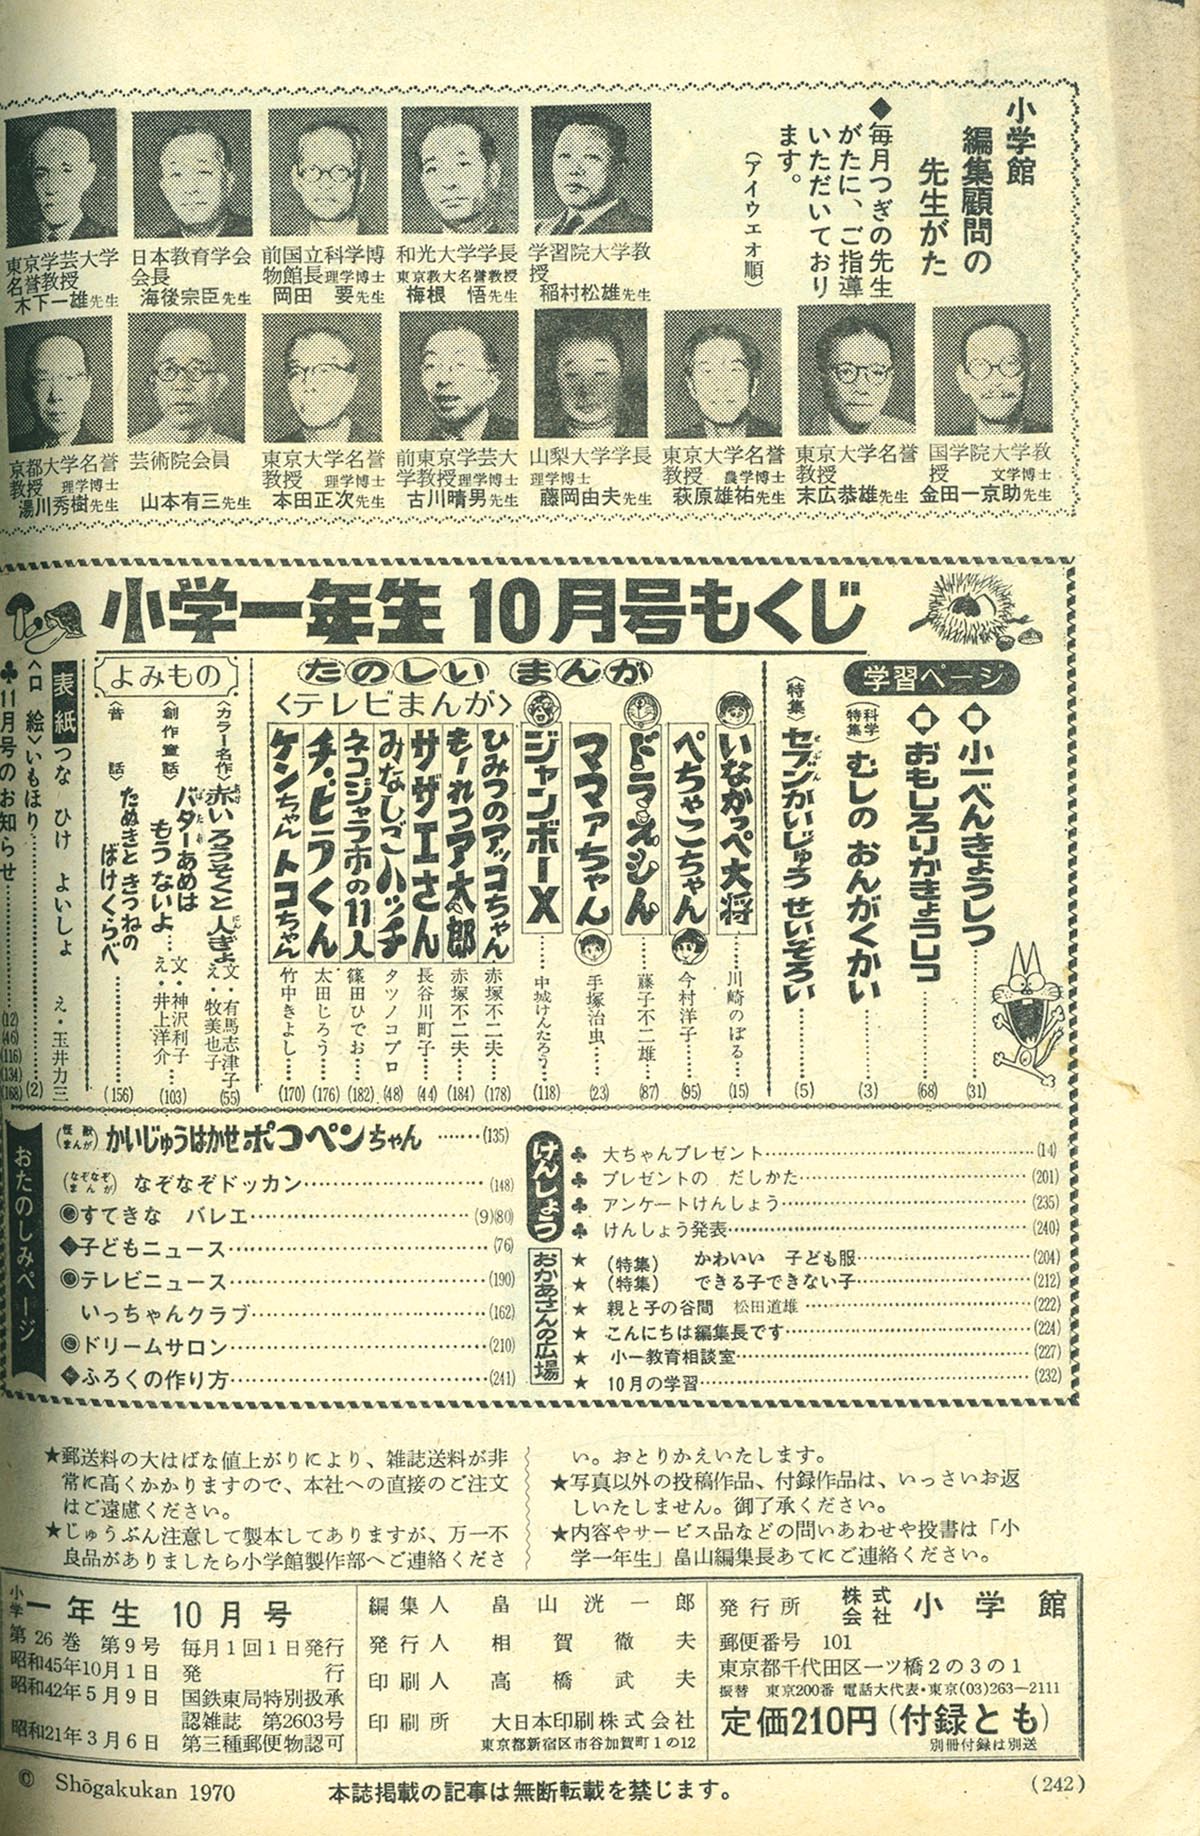 小学館
編集顧問の
先生がた
◆毎月つぎの先生
がたに、ご指導
いただいており
ます。
(アイウェオ順)
学習院大学教
授
稲村松雄先生
和光大学学長
東京教大名誉教授
梅根 悟先生
前国立科学博
物館長理学博士
岡田 要先生
日本教育学会
会長
海後宗臣先生
東京学芸大学
名誉教授
木下一雄先生
国学院大学教
授 文学博士
金田一京助先生
東京大学名誉
教授
末広恭雄先生
東京大学名誉
教授 農学博士
萩原雄祐先生
山梨大学学長
理学博士
藤岡由夫先生
前東京学芸大
学教授理学博士
古川晴男先生
東京大学名誉
教授 理学博士
本田正次先生
芸術院会員
山本有三先生
京都大学名誉
教授 理学博士
湯川秀樹先生
小学一年生 10月号もくじ
学習ページ
■小一べんきょうしつ……(31)
■おもしろりかきょうしつ……(68)
(科学特集)むしの おんがくかい……(3)
〈特集〉セブンかいじゅう せいぞろい……(5)
たのしい まんが
いなかっぺ大将……川崎のぼる……(15)
ぺちゃこちゃん……今村洋子……(95)
ドラえもん……藤子不二雄……(87)
ママァちゃん……手塚治虫……(23)
ジャンボーX……中城けんたろう……(118)
〈テレビまんが〉
ひみつのアッコちゃん 赤塚不二夫……(178)
もーれつア太郎 赤塚不二夫……(184)
サザエさん 長谷川町子……(44)
みなしごハッチ タツノコプロ……(48)
ネコジャラ市の11人 篠田ひでお……(182)
チ・ビラくん 太田じろう……(176)
ケンちゃんトコちゃん 竹中きよし……(170)
よみもの
〈カラー名作〉赤いろうそくと 人ぎょ 文・有馬志津子 え・牧美也子(55)
〈創作童話〉バターあめは もうないよ… 文・神沢利子 え・井上洋介…(103)
〈昔 話〉たぬきと きつねの ばけくらべ……(156)
表紙 つな ひけ よいしょ え・玉井力三
〈口 絵〉いもほり……(2)
♣11月号のお知らせ……(12)(46)(116)(134)(168)
おたのしみページ
(怪獣まんが)かいじゅうはかせポコペンちゃん……(135)
(なぞなぞまんが) なぞなぞドッカン……(148)
◉すてきな バレエ……(9)(80)
◆子どもニュース……(76)
◉テレビニュース……(190)
いっちゃんクラブ……(162)
◉ドリームサロン……(210)
◆ふろくの作り方……(241)
けんしょう
♣ 大ちゃんプレゼント……(14)
♣ プレゼントの だしかた……(201)
♣ アンケートけんしょう……(235)
♣ けんしょう発表……(240)
おかあさんの広場
★ (特集) かわいい 子ども服……(204)
★ (特集) できる子できない子……(212)
★ 親と子の谷間 松田道雄……(222)
★ こんにちは編集長です……(224)
★ 小一教育相談室……(227)
★ 10月の学習……(232)
★郵送料の大はばな値上がりにより、雑誌送料が非
常に高くかかりますので、本社への直接のご注文
はご遠慮ください。
★じゅうぶん注意して製本してありますが、万一不
良品がありましたら小学館製作部へご連絡くださ
い。おとりかえいたします。
★写真以外の投稿作品、付録作品は、いっさいお返
しいたしません。御了承ください。
★内容やサービス品などの問いあわせや投書は「小
学一年生」畠山編集長あてにご連絡ください。
小学一年生 10月号
第26巻 第9号 毎月1回1日発行
昭和45年10月1日 発行
昭和42年5月9日 国鉄東局特別扱承
認雑誌 第2603号
昭和21年3月6日 第三種郵便物認可
編集人 畠山洸一郎
発行人 相賀徹夫
印刷人 高橋武夫
印刷所 大日本印刷株式会社
東京都新宿区市谷加賀町1の12
発行所 株式会社 小学館
郵便番号 101
東京都千代田区一ツ橋2の3の1
振替 東京200番 電話大代表・東京(03)263―2111
定価210円(付録とも)
別冊付録は別送
© Shōgakukan 1970
本誌掲載の記事は無断転載を禁じます。
(242)